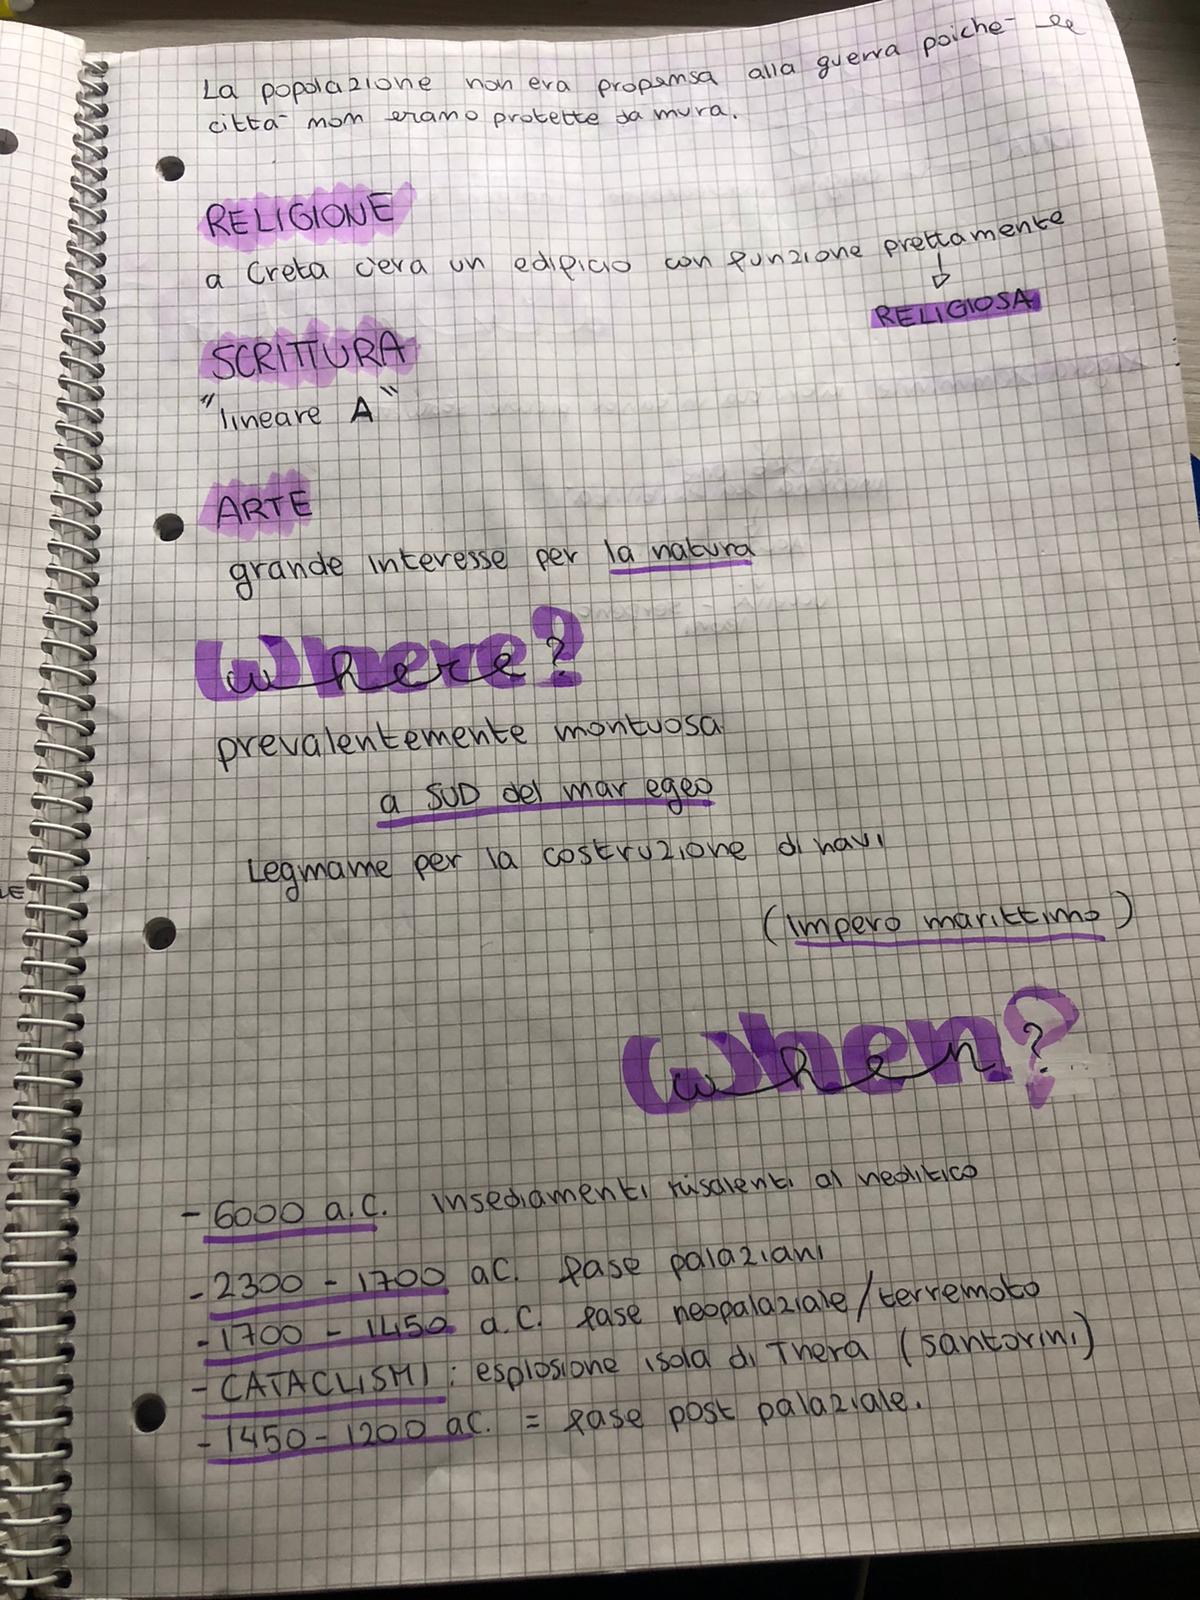 La popolazione non era propensa alla guerra poiché le
città non erano protette da mura.
RELIGIONE
a Creta c'era un edificio con funzione prettamente
RELIGIOSA
SCRITTURA
"lineare A"
ARTE
grande interesse per la natura
where?
prevalentemente montuosa
a SUD del mar egeo
Legmame per la costruzione di navi
(impero marittimo)
when?
- 6000 a.C. insediamenti risalenti al neolitico
- 2300 - 1700 aC. fase palaziani
- 1700 - 1450 a.C. fase neopalaziale/terremoto
- CATACLISMI: esplosione isola di Thera (santorini)
- 1450 - 1200 aC. = fase post palaziale.